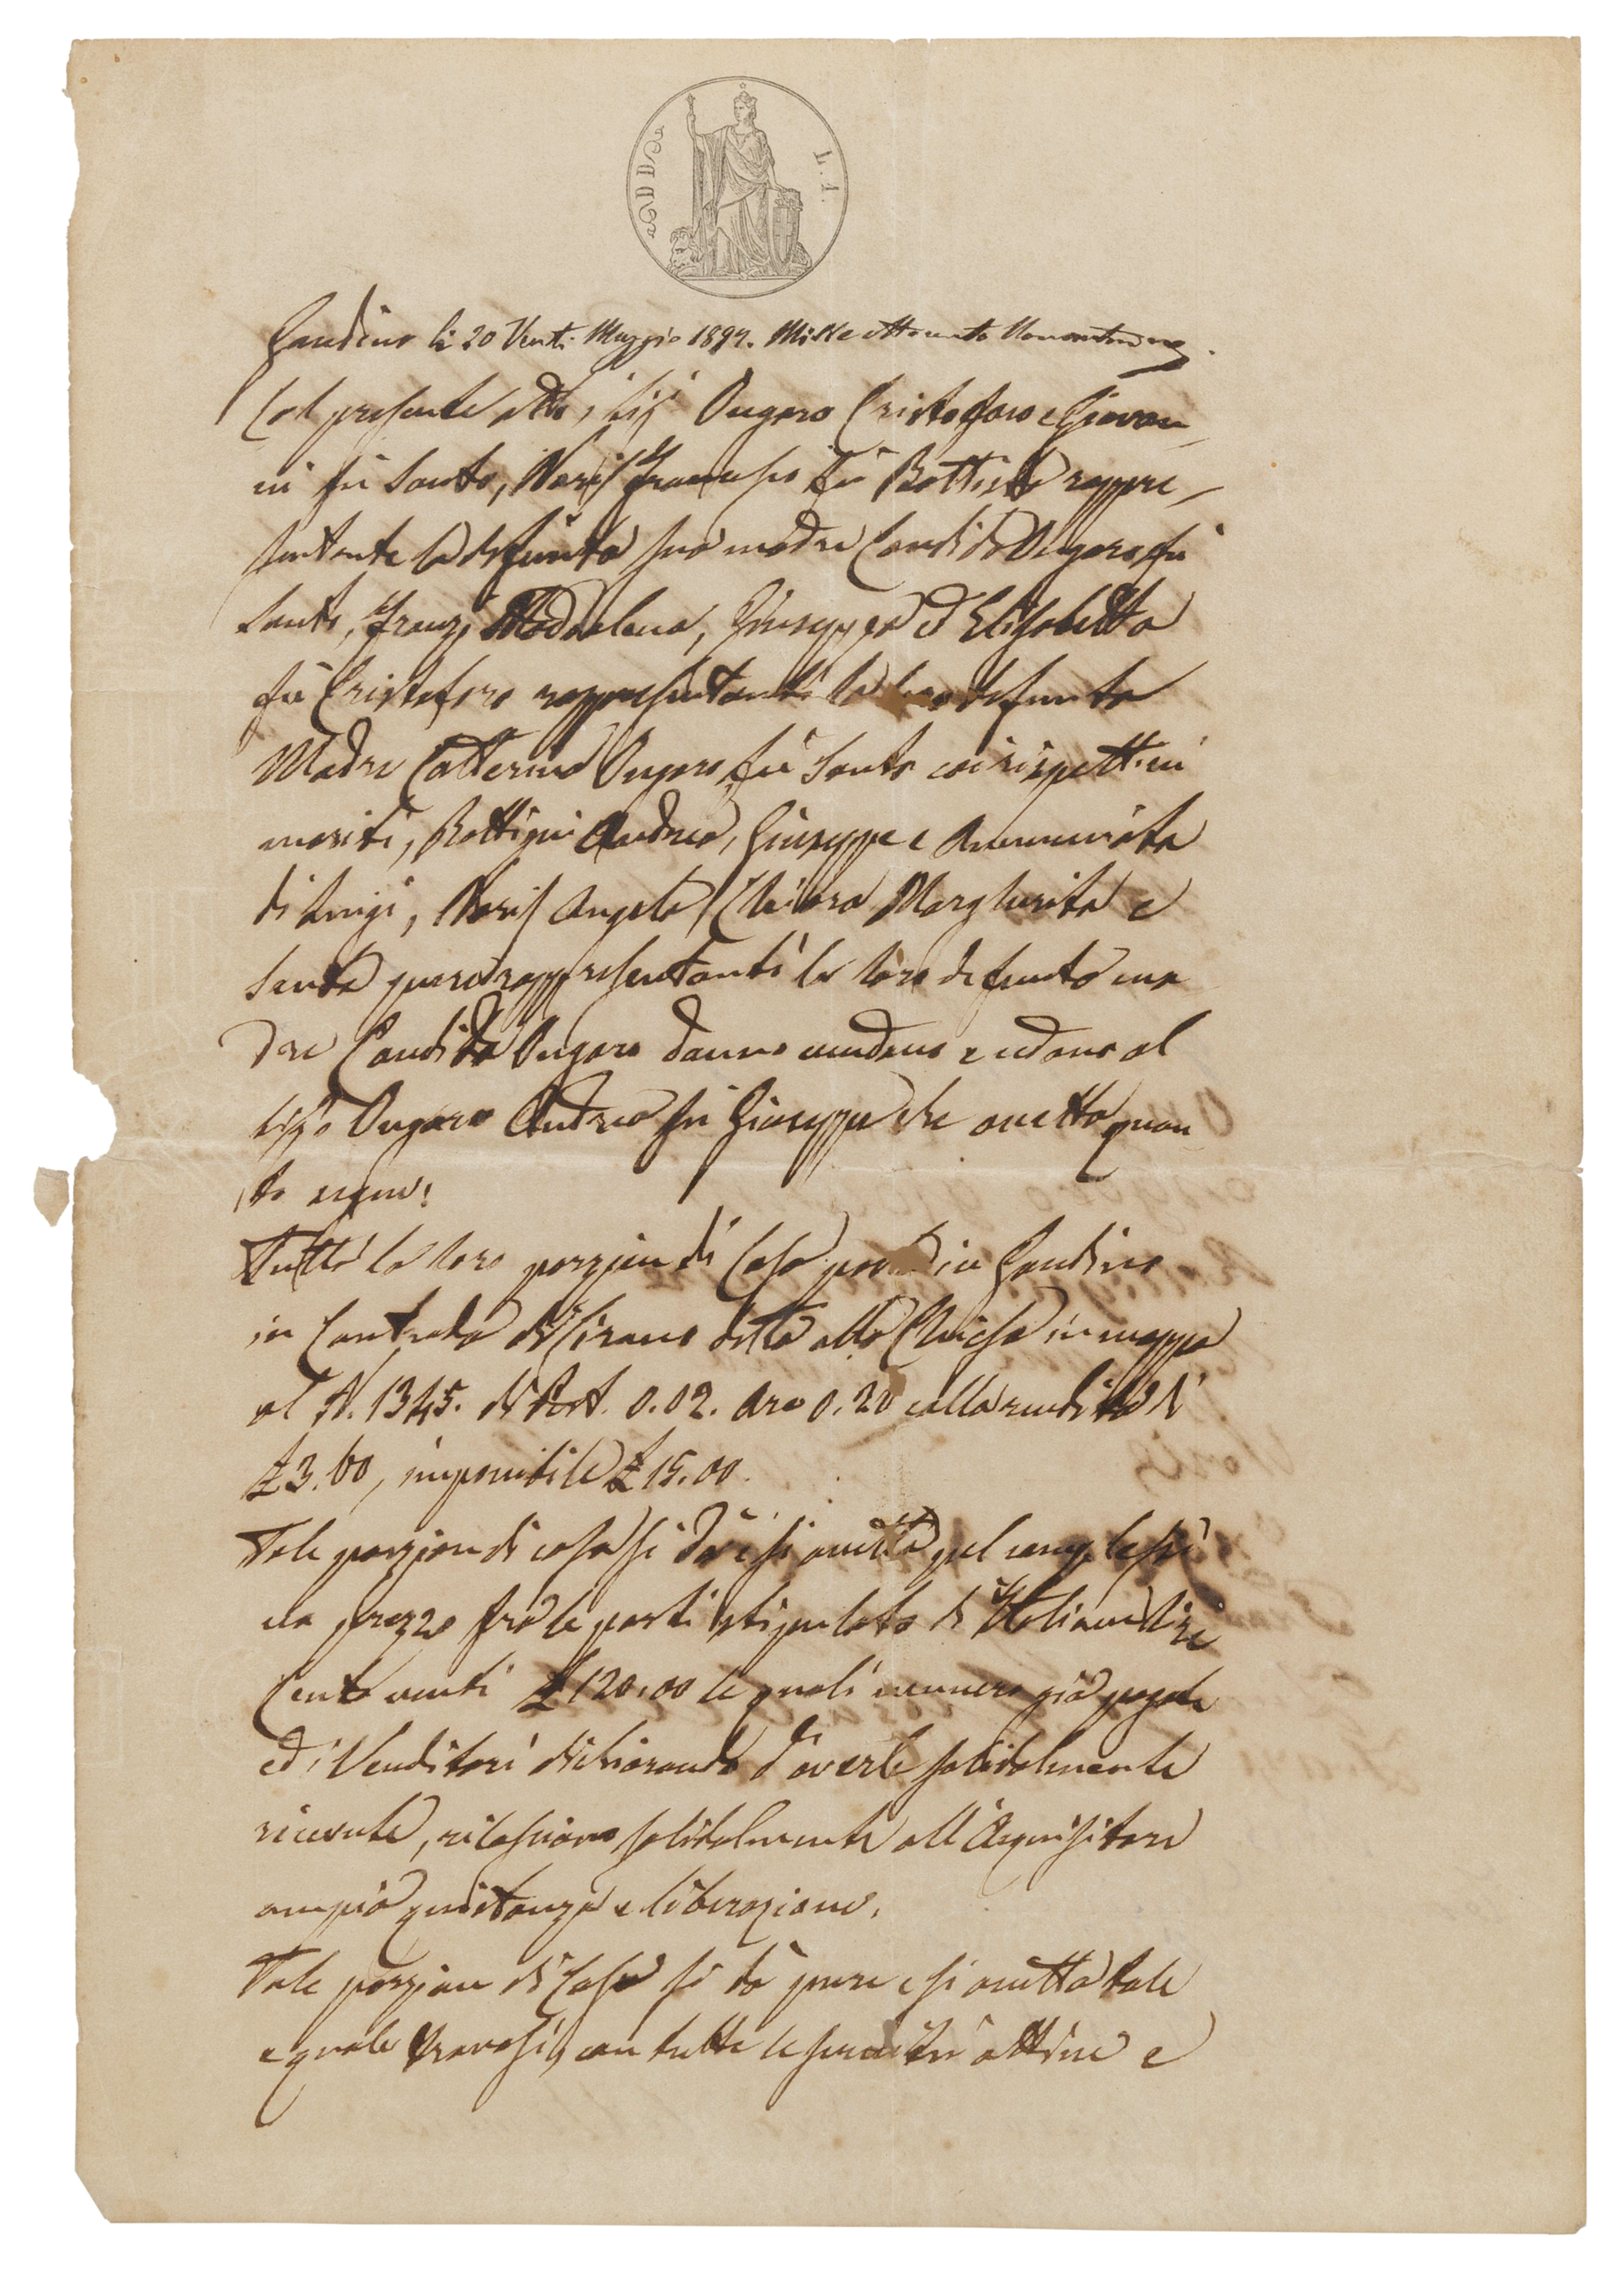 L. 1.
Gandino li 20 Venti Maggio 1899. Mille ottocento Novantanove.
Col presente atto, i Sigi Ongaro Cristoforo e Giovan
ni fu Santo, Noris Francesco fu Battista rappre-
sentante la defunta sua madre Candida Ongaro fu
Santo, Franzi Maddalena, Giuseppa ed Elisabetta
fu Cristoforo rappresentanti la loro defunta
Madre Catterina Ongaro fu Santo coi rispettivi
mariti, Bottigni Andrea, Giuseppe e Annunciata
di Luigi, Noris Angela Chiara Margherita e
Santa rappresentanti la loro defunta ma
dre Candida Ongaro danno vendono e cedono al
Sigr Ongaro Andrea fu Giuseppe che accetta quan
to segue:
Tutta la loro porzion di Casa posta in Gandino
in Contrada di Cirano detta alla Chiesa in mappa
al N. 1345. di Pert. 0.02. Are 0.20 colla rendita di
£ 3.60, imponibile £ 15.00.
Tale porzion di casa si dà e si accetta pel complessi
vo prezzo fra le parti stipulato di Italiane Lire
Cento venti £ 120.00 le quali vennero già pagate
ed i Venditori dichiarando d'averle solidalmente
ricevute, rilasciano solidalmente all'Acquisitore
ampia quietanza e liberazione.
Tale porzion di Casa si dà pure e si accetta tale
e quale trovasi, con tutte le servitù attive e